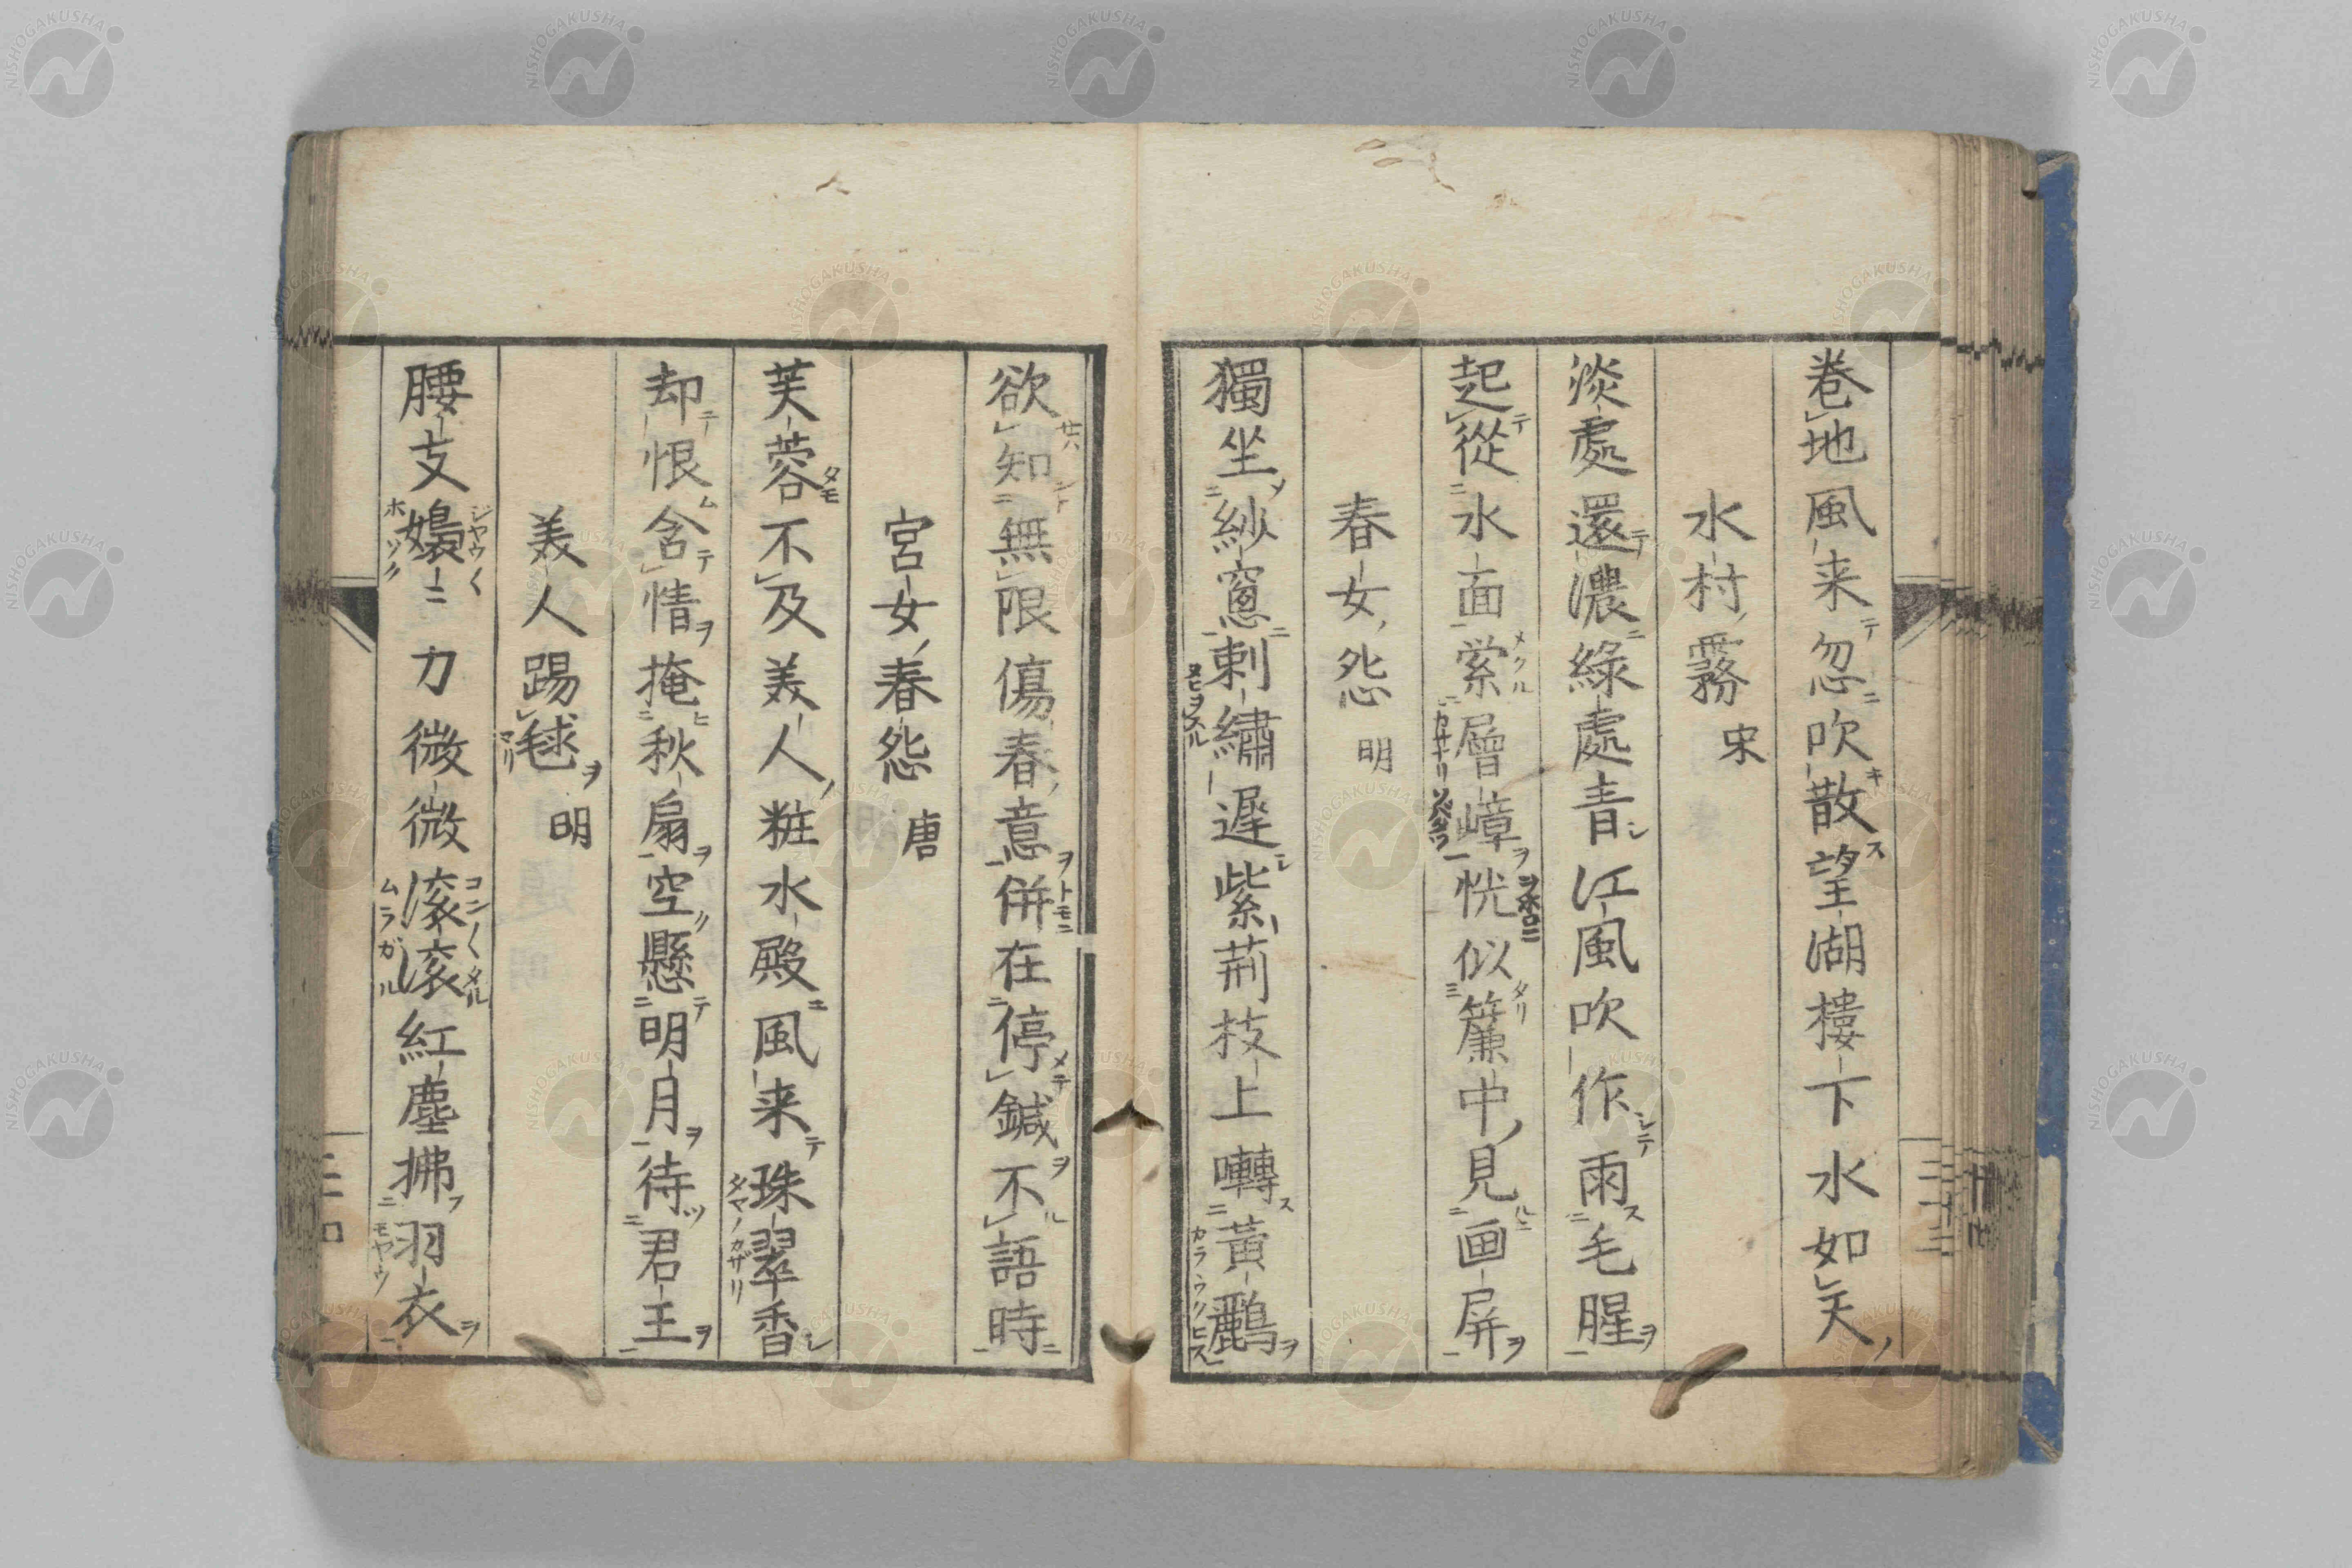 巻地風来忽吹散望湖樓下水如天
水村霧 宋
淡處還濃綠處青江風吹作雨毛腥
起從水面縈層嶂恍似簾中見画屏
春女怨 明
獨坐紗窻刺繡遲紫荊枝上囀黃鸝
欲知無限傷春意併在停鍼不語時
宮女春怨 唐
芙蓉不及美人粧水殿風来珠翠香
却恨含情掩秋扇空懸明月待君王
美人踢毬 明
腰支嬝〻力微微滚滚紅塵拂羽衣